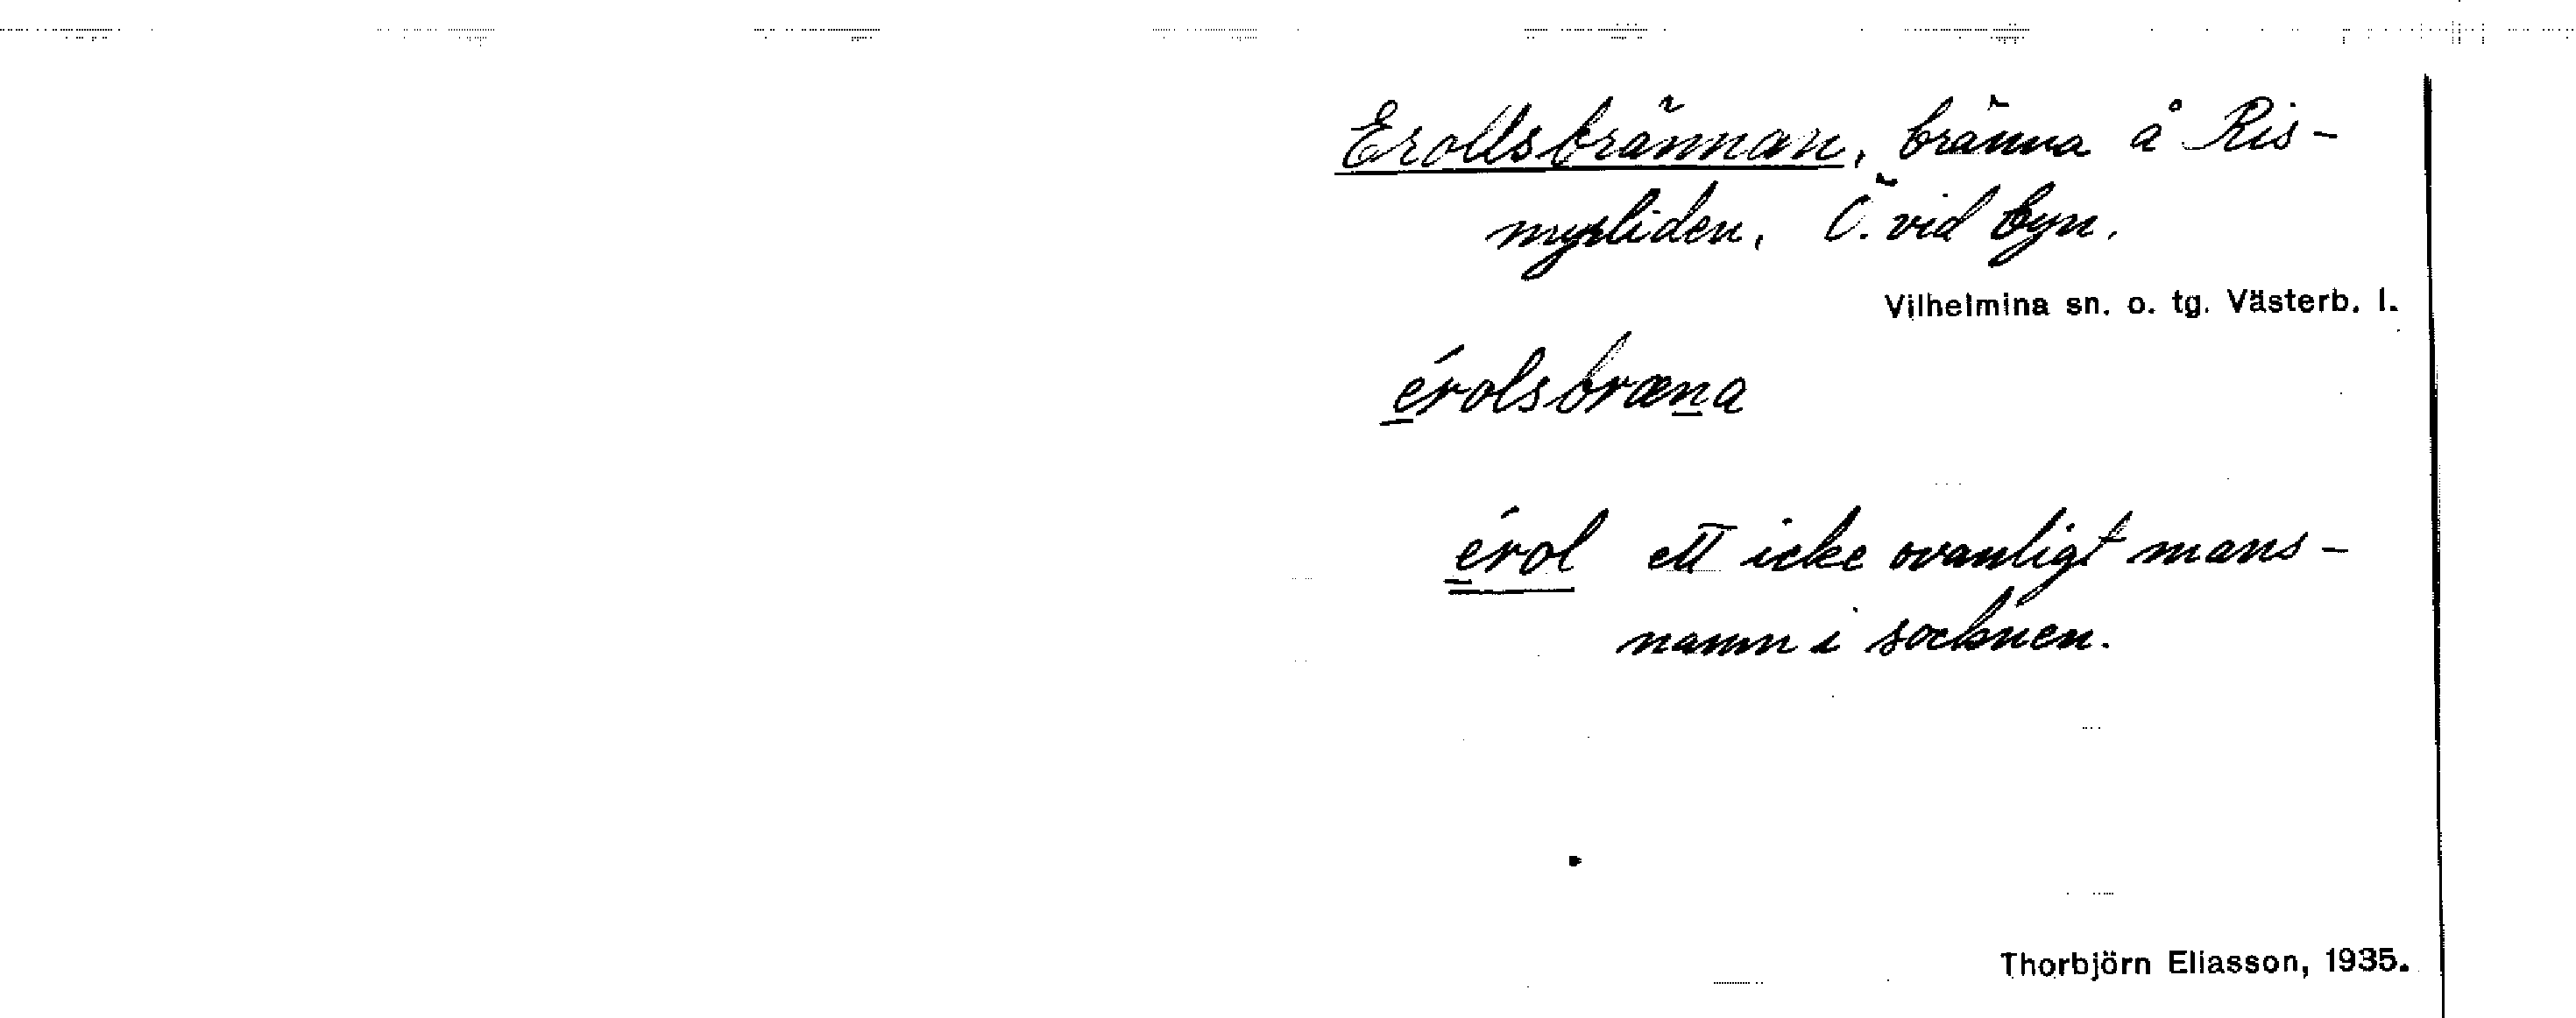 Erollsbrännan, bränna å Ris-
myrliden, Ö. vid byn.
Vilhelmina sn. o. tg. Västerb. l.
érolsbræna
érol ett icke ovanligt mans-
namn i socknen.
Thorbjörn Eliasson, 1935.